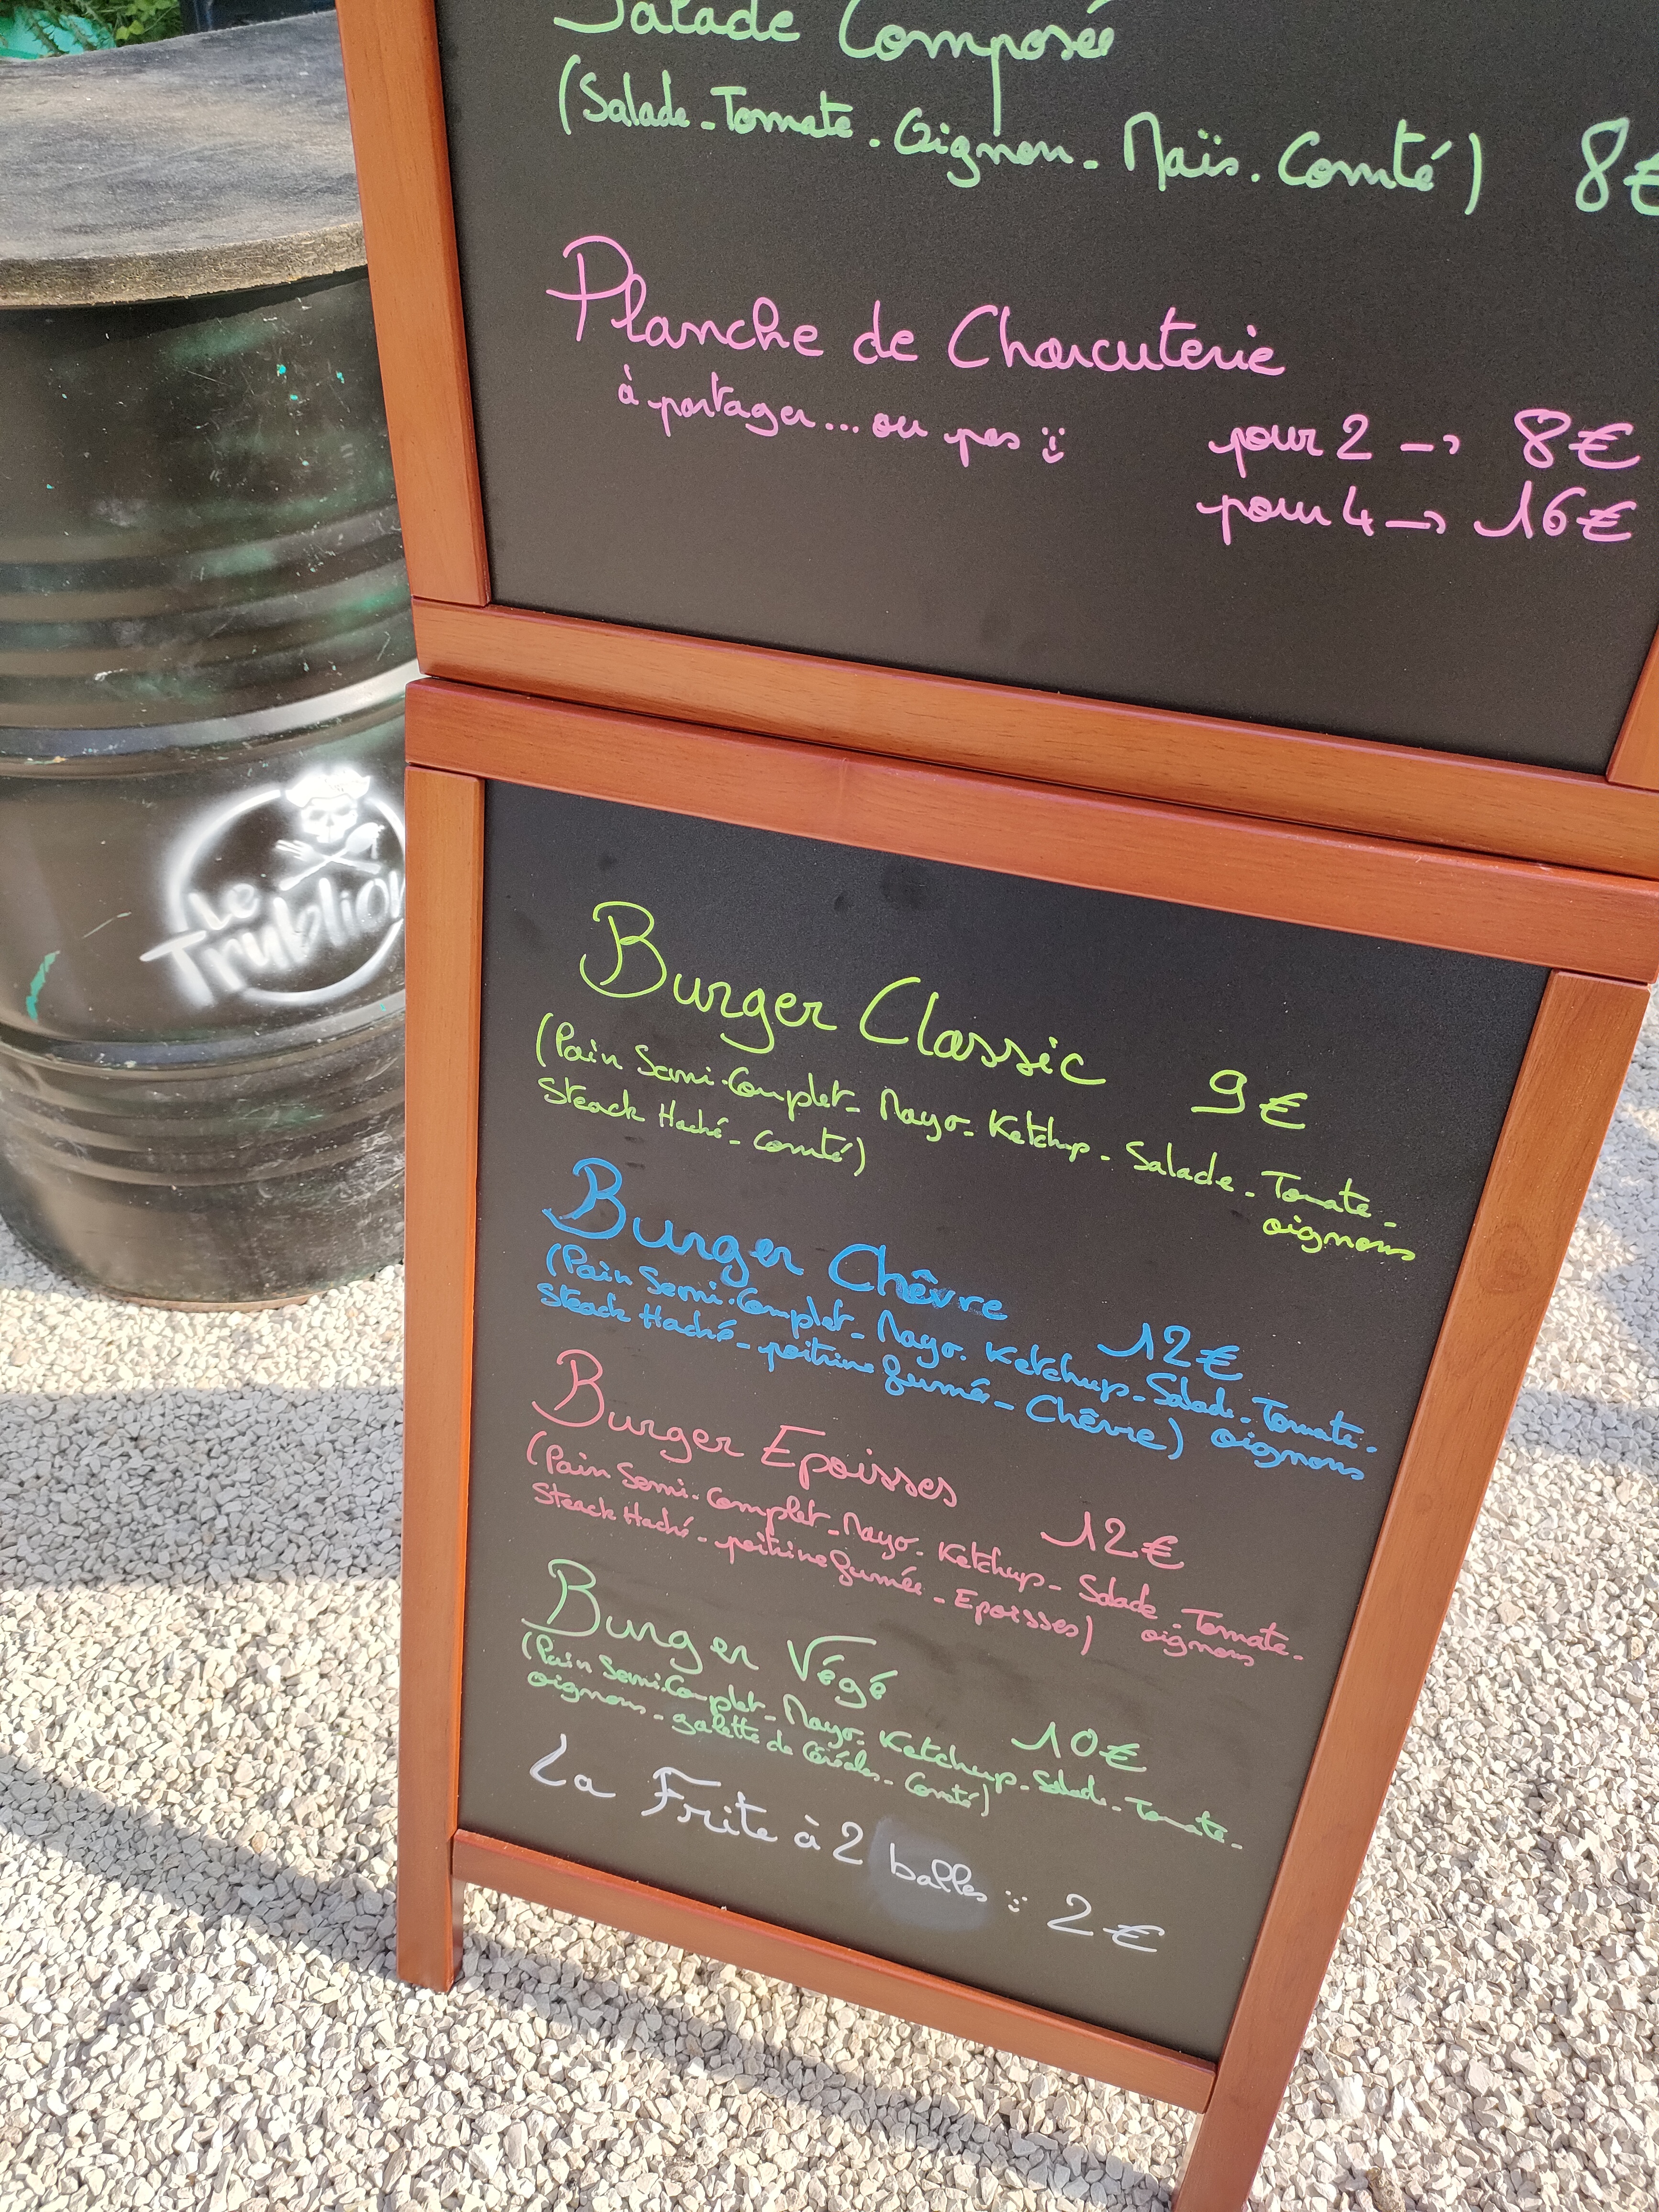 Salade Composée
(Salade - Tomate - Oignon - Maïs - Comté) 8€
Planche de Charcuterie
à partager... ou pas :)
pour 2 -> 8€
pour 4 -> 16€
Le
Trublion
Burger Classic 9€
(Pain Semi-Complet - Mayo - Ketchup - Salade - Tomate -
oignons
Steack Haché - Comté)
Burger Chêvre 12€
(Pain Semi-Complet - Mayo - Ketchup - Salade - Tomate -
oignons
Steack Haché - poitrine fumé - Chêvre)
Burger Epoisses 12€
(Pain Semi-Complet - Mayo - Ketchup - Salade - Tomate -
oignons
Steack Haché - poitrine fumée - Epoisses)
Burger Végé 10€
(Pain Semi-Complet - Mayo - Ketchup - Salade - Tomate -
oignons - galette de Céréales - Comté)
La Frite à 2 balles :) 2€